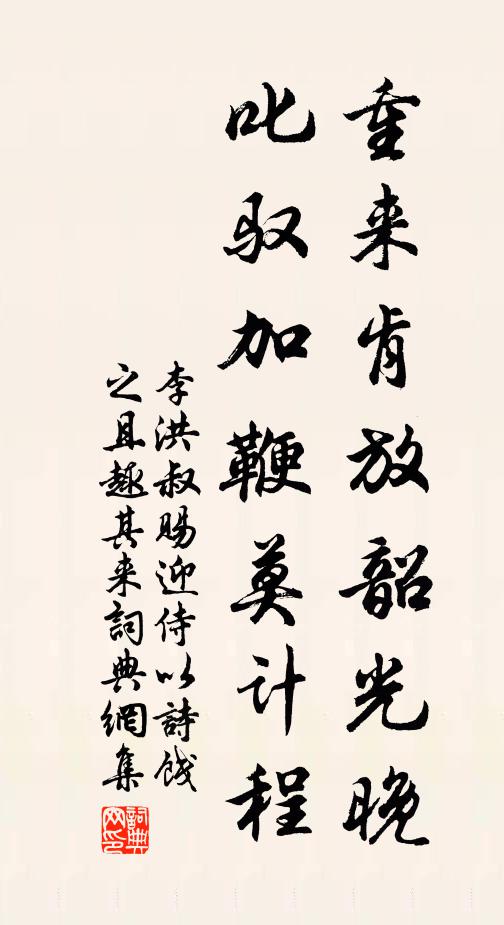 重来肯放韶光晚
叱驭加鞭莫计程
李洪叔赐迎侍以詩饯
之且趣其来詞典網集
詞典網印